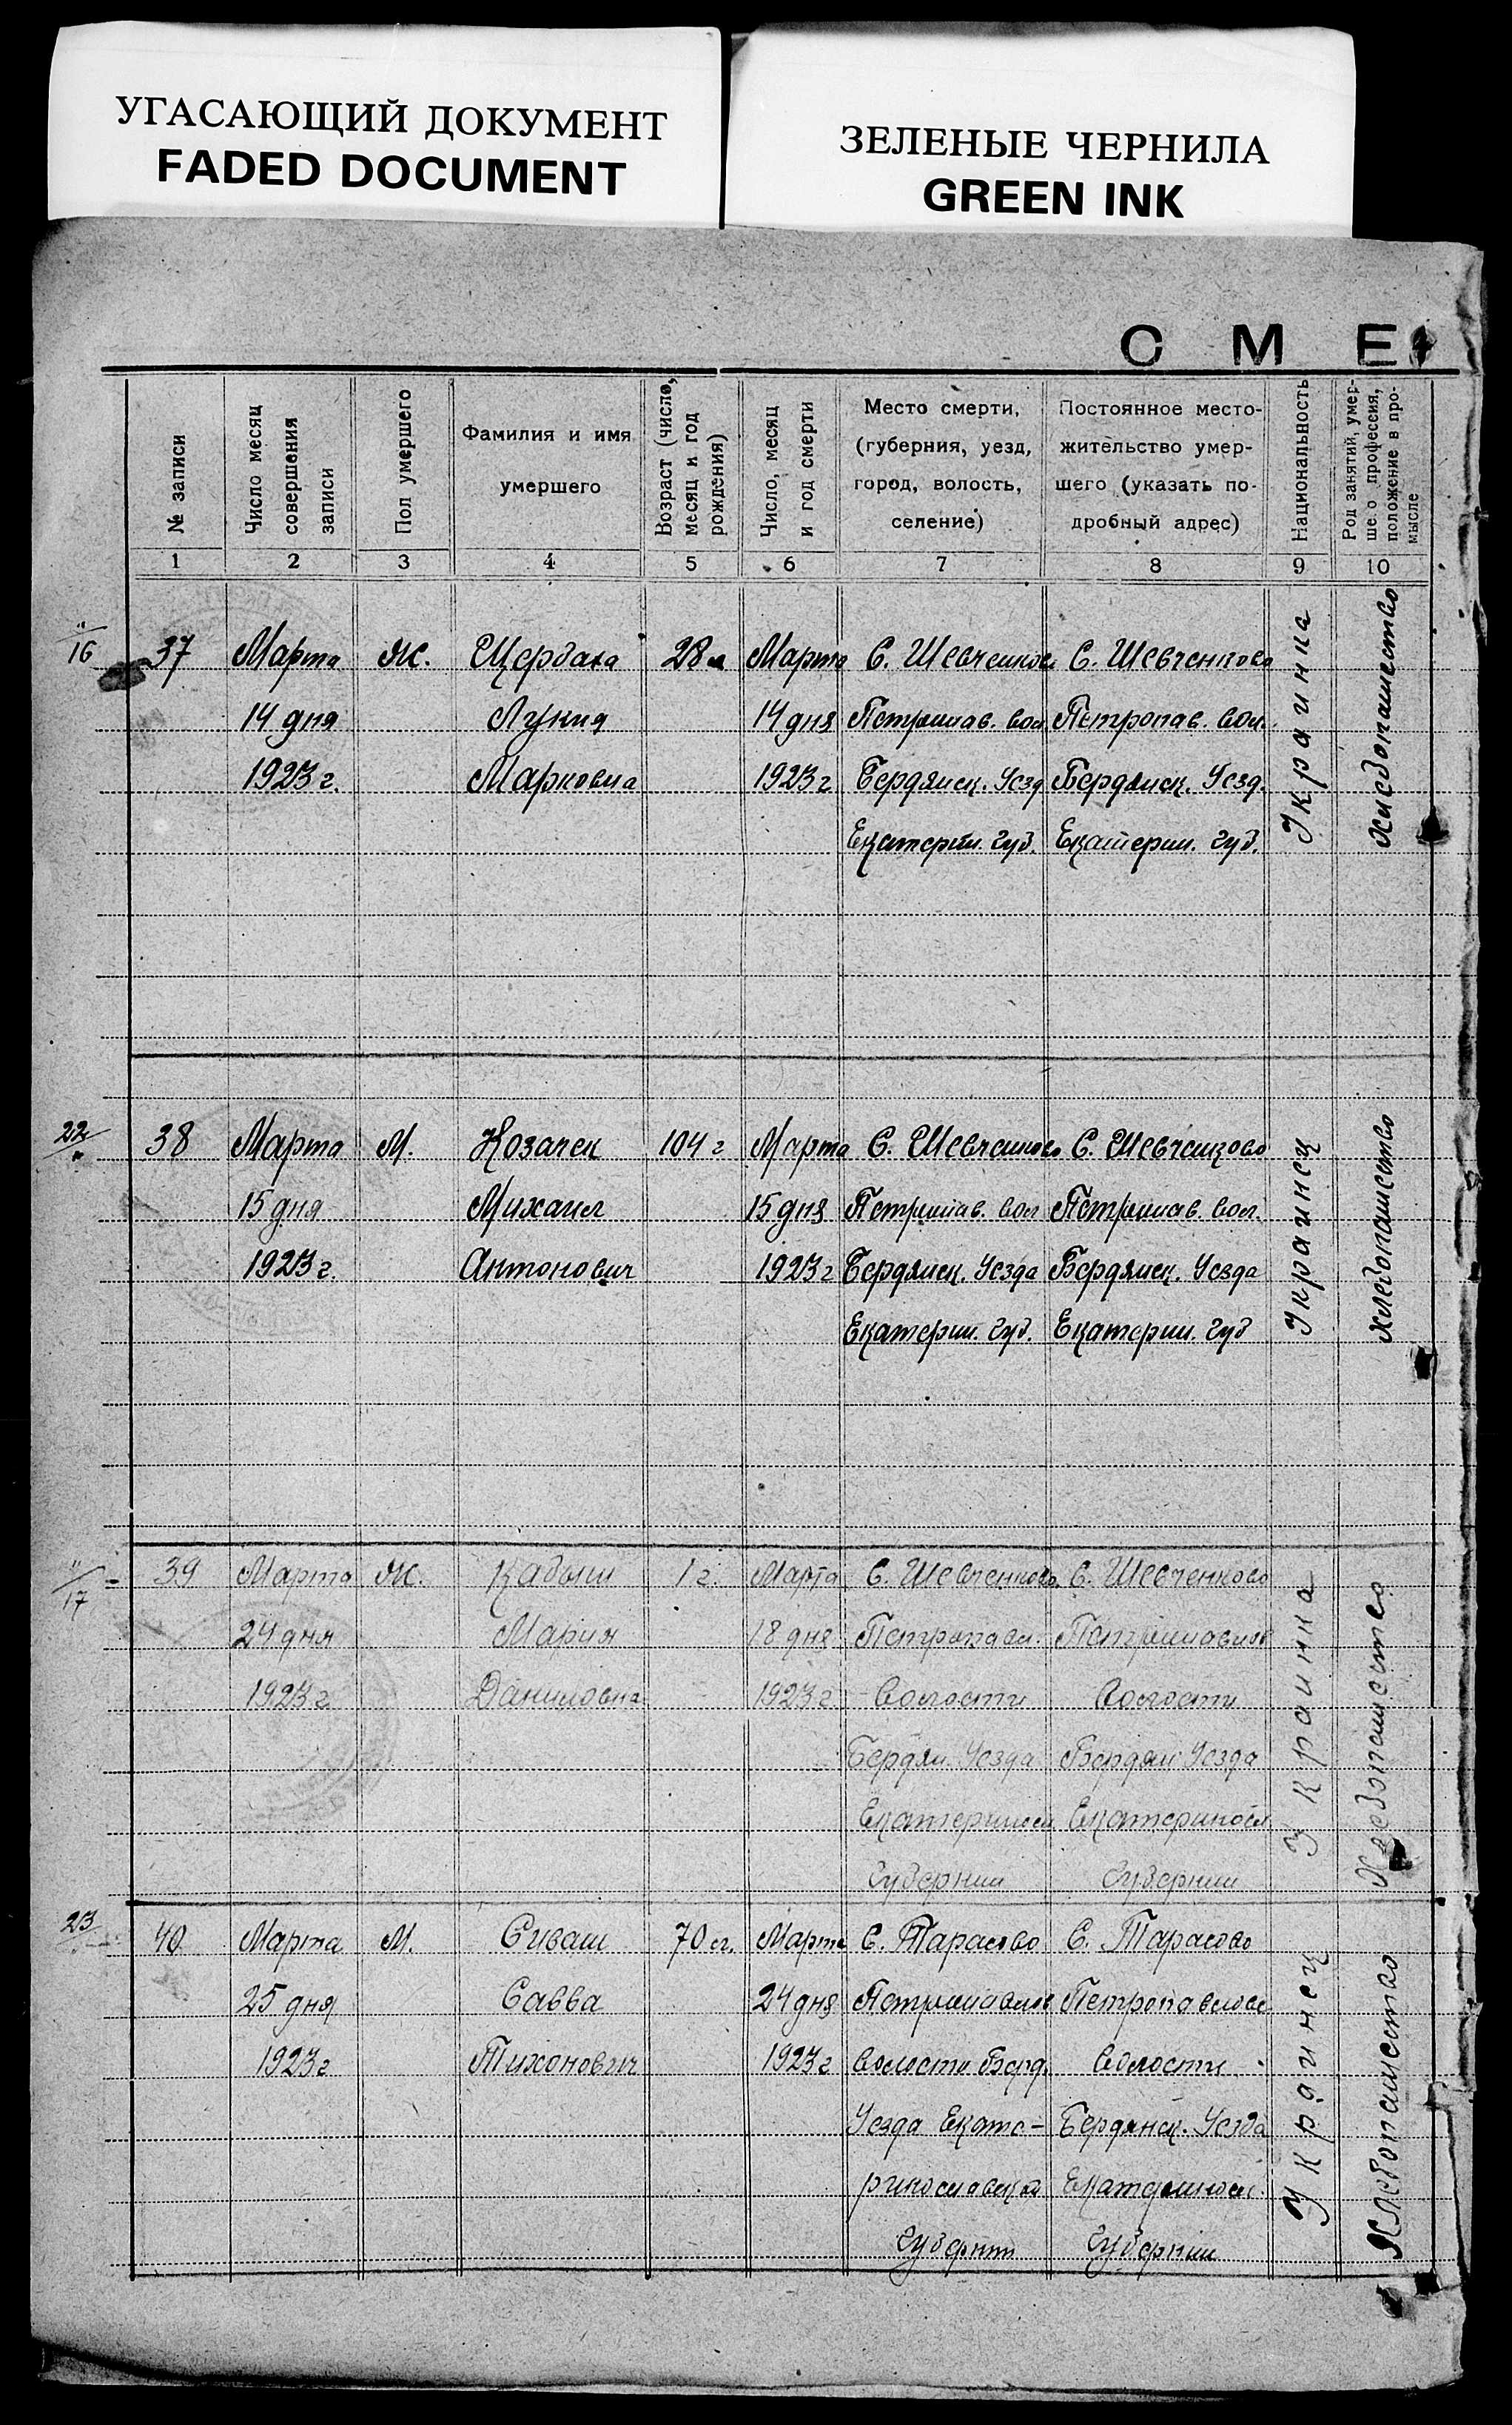 УГАСАЮЩИЙ ДОКУМЕНТ
FADED DOCUMENT
ЗЕЛЕНЫЕ ЧЕРНИЛА
GREEN INK
С М Е
№ записи
Число месяц совершения записи
Пол умершего
Фамилия и имя умершего
Возраст (число, месяц и год рождения)
Число, месяц и год смерти
Место смерти, (губерния, уезд, город, волость, селение)
Постоянное место-жительство умер-шего (указать по-дробный адрес)
Национальность
Род занятий, умер-ше о профессия, положение в про-мысле
1 2 3 4 5 6 7 8 9 10
16
37 Марта Ж. Щербака 28 Марта С. Шевченково С. Шевченково
14 дня Лукия 14 дня Петропав. вол. Петропав. вол.
1923 г. Марковна 1923 г Бердянск. Уезд Бердянск. Уезд.
Екатерин. губ. Екатерин. губ.
Украинка
Хлебопашество
22
38 Марта М. Козачек 104 г Марта С. Шевченково С. Шевченково
15 дня Михаил 15 дня Петропав. вол Петропав. вол.
1923 г. Антонович 1923 г Бердянск. Уезда Бердянск. Уезда
Екатерин. губ. Екатерин. губ
Украинец
Хлебопашество
17
39 Марта Ж. 1 г. Марта С. Шевченково С. Шевченково
24 дня Мария 18 дня Петропавл. Петропавлов
1923 г Даниловна 1923 г Волости Волости
Бердян. Уезда Бердян Уезда
Екатериносл Екатериносл
Губернии Губернии
Украинка
Хлебопашество
23
40 Марта М. Сиваш 70 л. Марта С. Тарасово С. Тарасово
25 дня Савва 24 дня Петропавлов Петропавлов
1923 г Тихонович 1923 г волости Берд. волости
Уезда Екате- Бердянск. Уезда
ринославской Екатеринос.
Губернии Губернии
Украинец
Хлебопашество